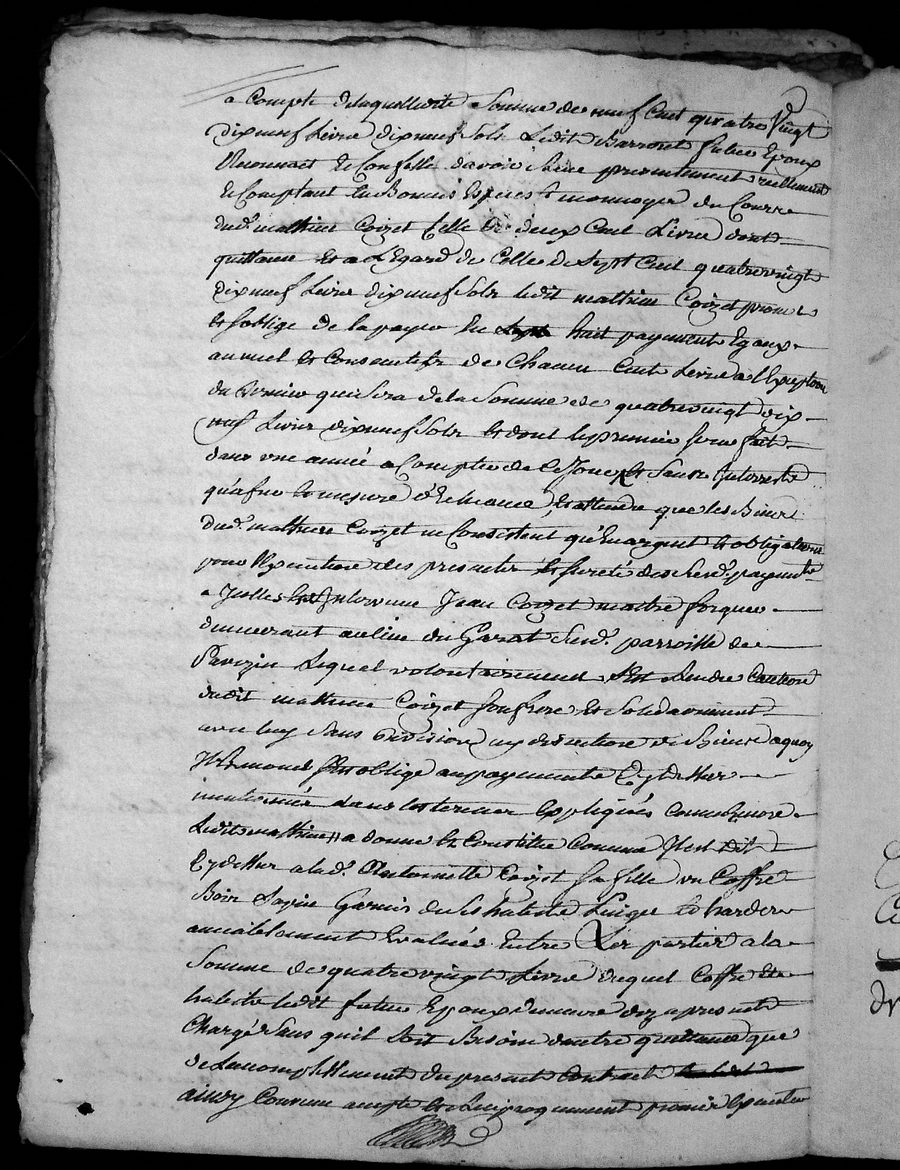 a Compte delaquelledite Somme de neuf Cent quatre Vingt
dixneuf Livre dixneuf Sols Ledit Barroret futur Epoux
Reconnoit Et Confesse davoir Reçue presentement reellement
Et Comptant En Bonnes Especes & monnoyes du Cours
dud. mathieu Coizet Celle de deux Cent Livre dont
quittance Et a L'Egard de Celle de Sept Cent quatrevingt
dixneuf Livre dixneuf Sols ledit mathieu Coizet promet
Et Soblige de la payer En huit payements Egaux
annuel Et Consecutifs de Chacun Cent Livre a l'Exception
du dernier qui Sera de la Somme de quatrevingt dix
neuf Livres dixneuf Sols Et dont le premier Sera fait
dans une année a Compter de Ce Jour Et Sans Interrests
qu'a fur Et mesure d'Echeance, Et attendu que les Biens
dud. mathieu Coizet ne Consistent qu'En argent Et obligations
pour l'Execution des presentes Et Sureté desd. payements
a Icelles Est Intervenu Jean Coizet maitre forgeur
demeurant au lieu du Garat Sus. parroisse de
Pavezin Lequel volontairement S'Est Rendu Caution
dudit mathieu Coizet Son frere Et Solidairement
avec luy Sans division ny discution de Biens a quoy
Il Renonce S'Est obligé au payements Cy dessus
mentionnés dans les termes Expliqués Comme Encore
Ledit mathieu a donné Et Constitué Comme Il Est dit
Cy dessus a la d. Antoinette Coizet Sa fille un Coffre
Bois Sapin Garnis de Ses habits Linges Et hardes
amiablement Evalués Entre Les parties a la
Somme de quatre vingt Livre duquel Coffre Et
habits ledit futur Epoux demeure dez apresent
Chargé Sans quil Soit Besoin dautre quittance que
de Laccomplissement du present Contract
ainsy Convenu accepté Et Reciproquement promis Executer